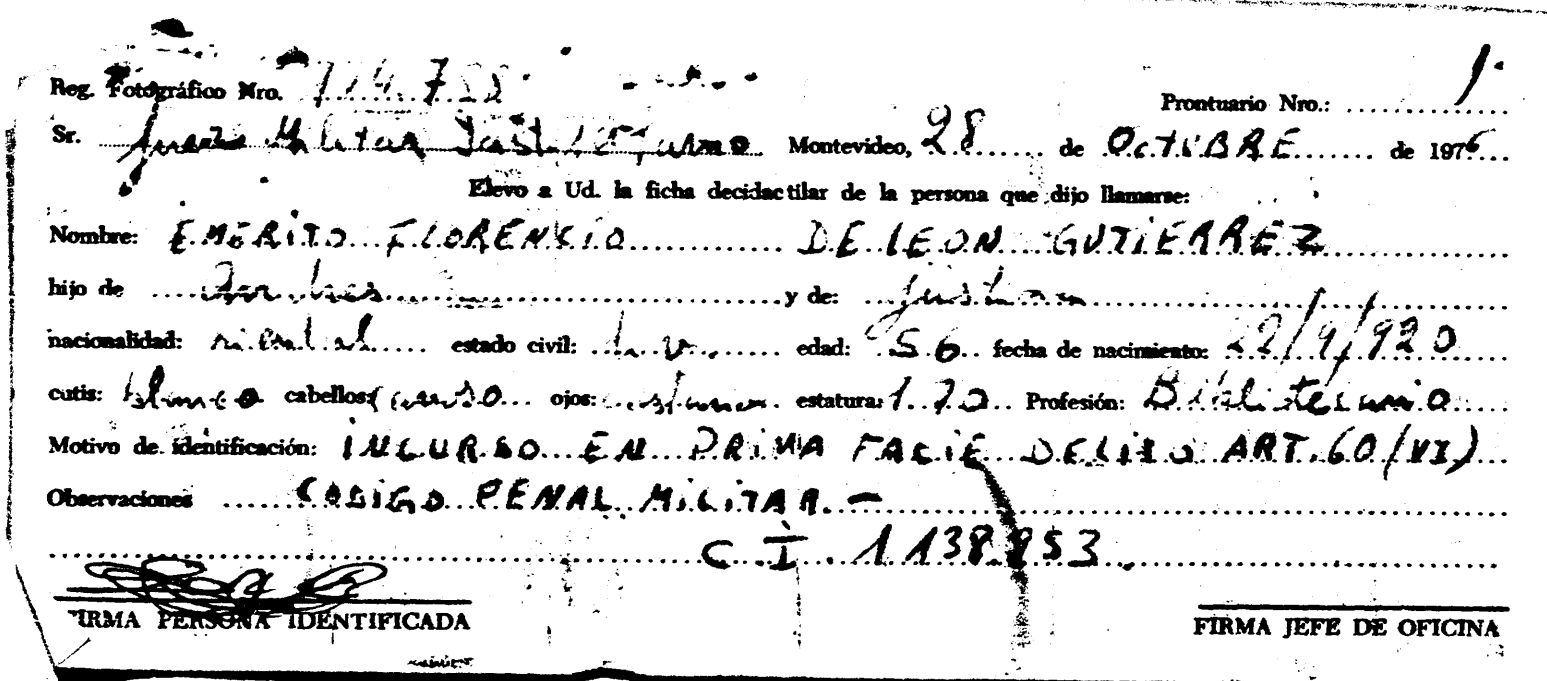 Reg. Fotográfico Nro. Prontuario Nro.: 1
Sr. Juez Militar Montevideo, 28 de OCTUBRE de 1976
Elevo a Ud. la ficha decidactilar de la persona que dijo llamarse:
Nombre: EMERITO FLORENCIO DE LEON GUTIERREZ
hijo de y de:
nacionalidad: oriental estado civil: edad: 56 fecha de nacimiento: 22/9/920
cutis: blanco cabellos: ojos: castano estatura: 1.70 Profesión: Bibliotecario
Motivo de identificación: INCURSO EN PRIMA FACIE DELITO ART. 60/(VI)
Observaciones CODIGO PENAL MILITAR. -
C I. 1138853
FIRMA PERSONA IDENTIFICADA FIRMA JEFE DE OFICINA